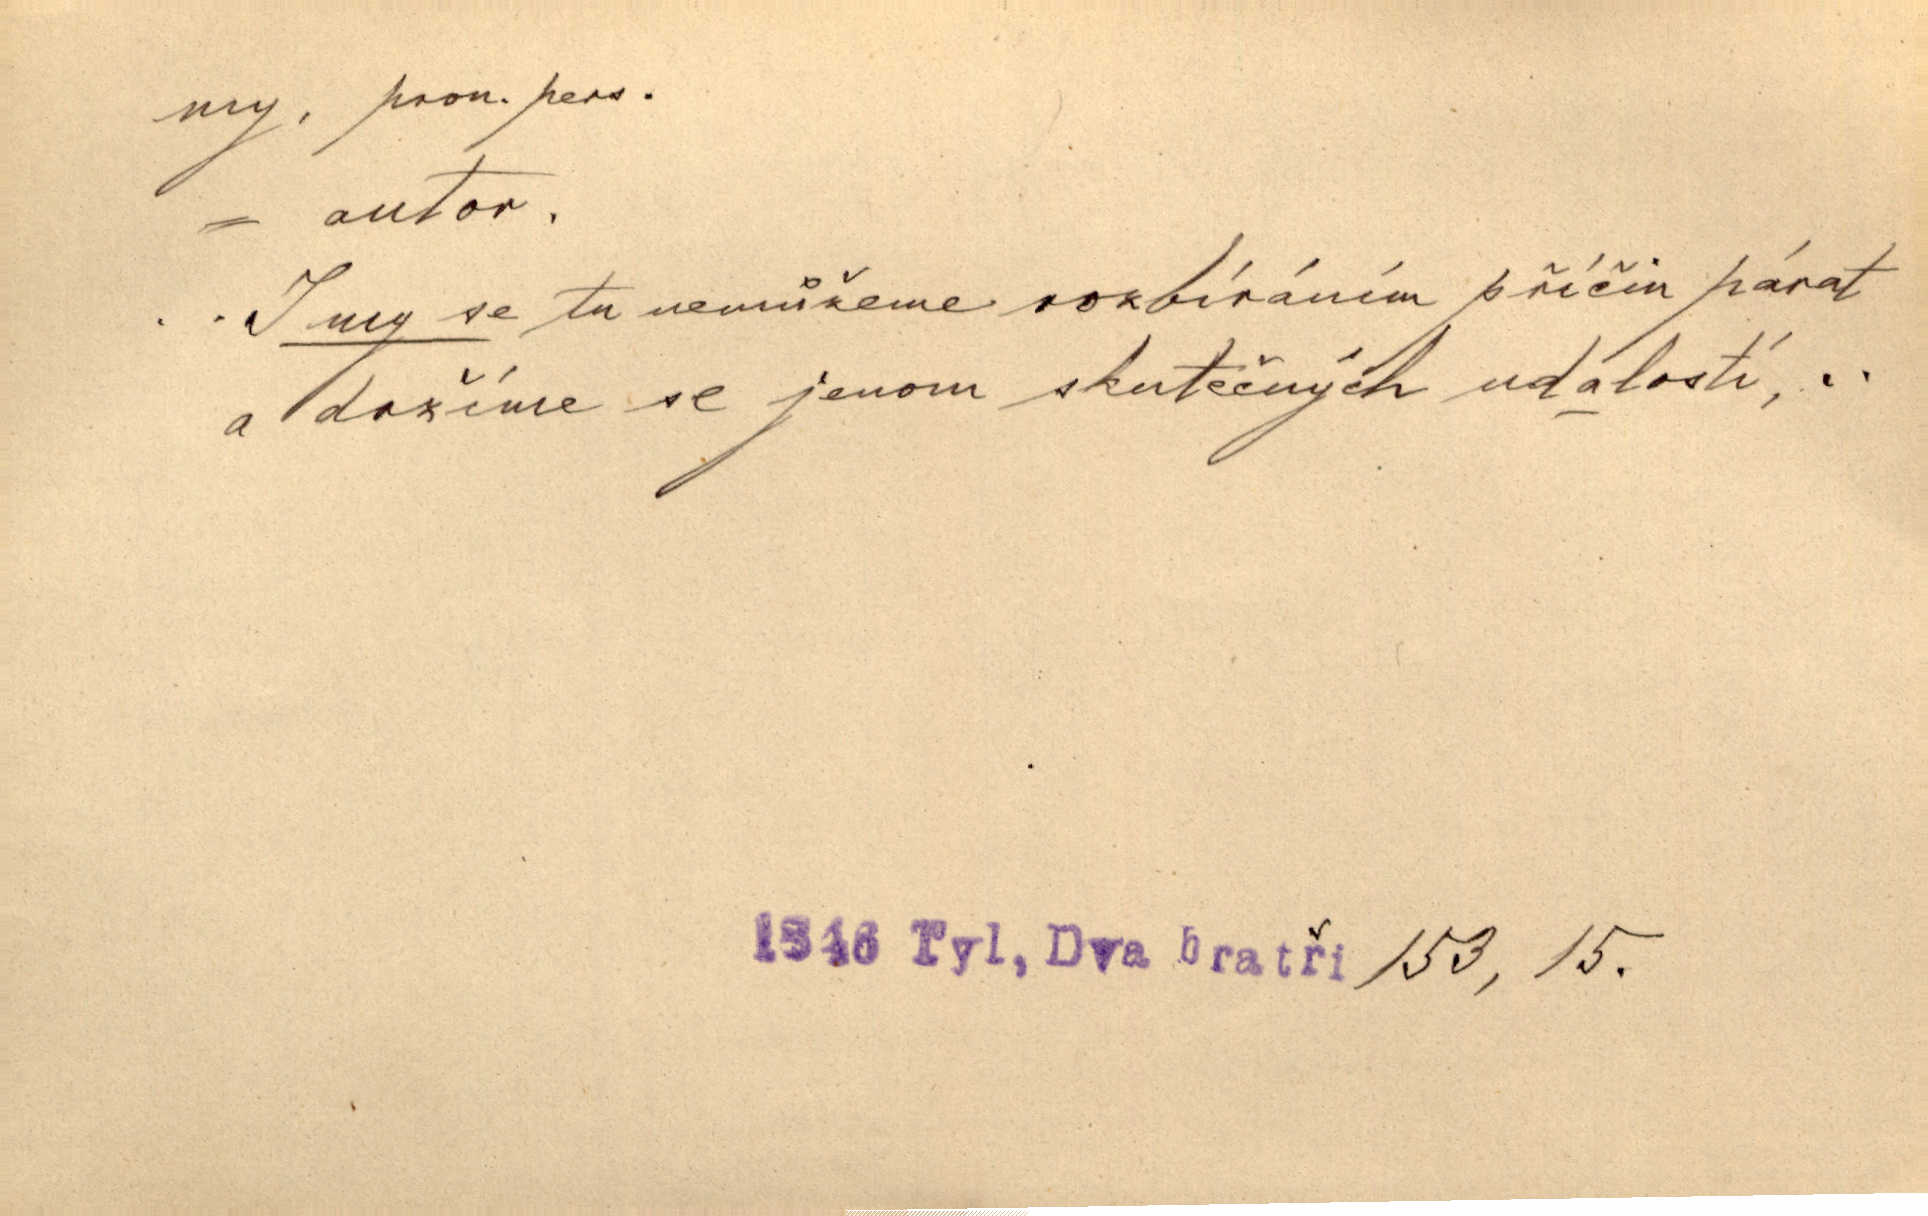 my, pron. pers.
= autor.
. . I my se tu nemůžeme rozbíráním příčin párat
a držíme se jenom skutečných událostí, . .
1846 Tyl, Dva bratři 153, 15.